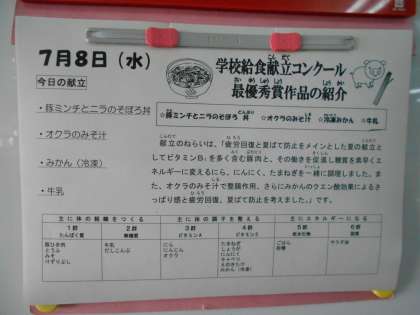 7月8日（水）
学校給食献立コンクール
最優秀賞作品の紹介
今日の献立
☆豚ミンチとニラのそぼろ丼 ☆オクラのみそ汁 ☆冷凍みかん ☆牛乳
・豚ミンチとニラのそぼろ丼
・オクラのみそ汁
・みかん（冷凍）
・牛乳
献立のねらいは、「疲労回復と夏ばて防止をメインとした夏の献立と
してビタミンB₁を多く含む豚肉と、その働きを促進し糖質を素早くエ
ネルギーに変えるにら、にんにく、たまねぎを一緒に調理しました。ま
た、オクラのみそ汁で整腸作用、さらにみかんのクエン酸効果によるさ
っぱり感と疲労回復、夏ばて防止を考えました。」です。
主に体の組織をつくる 主に体の調子を整える 主にエネルギーになる
1群 2群 3群 4群 5群 6群
たんぱく質 無機質 ビタミンA ビタミンC 炭水化物 脂質
豚ひき肉 牛乳 にら たまねぎ ごはん サラダ油
とうふ だしこんぶ にんじん しょうが 砂糖
みそ オクラ にんにく
けずりぶし キャベツ
えのきたけ
みかん（冷凍）